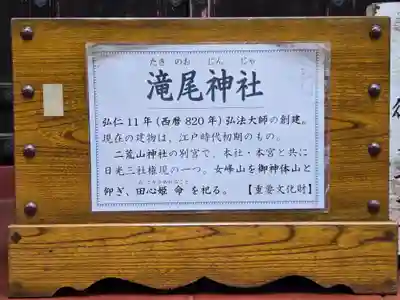 たき の お じん じゃ
滝尾神社
弘仁11年(西暦820年)弘法大師の創建。
現在の建物は、江戸時代初期のもの。
二荒山神社の別宮で、本社・本宮と共に
日光三社権現の一つ。女峰山を御神体山と
仰ぎ、田心姫命を祀る。【重要文化財】